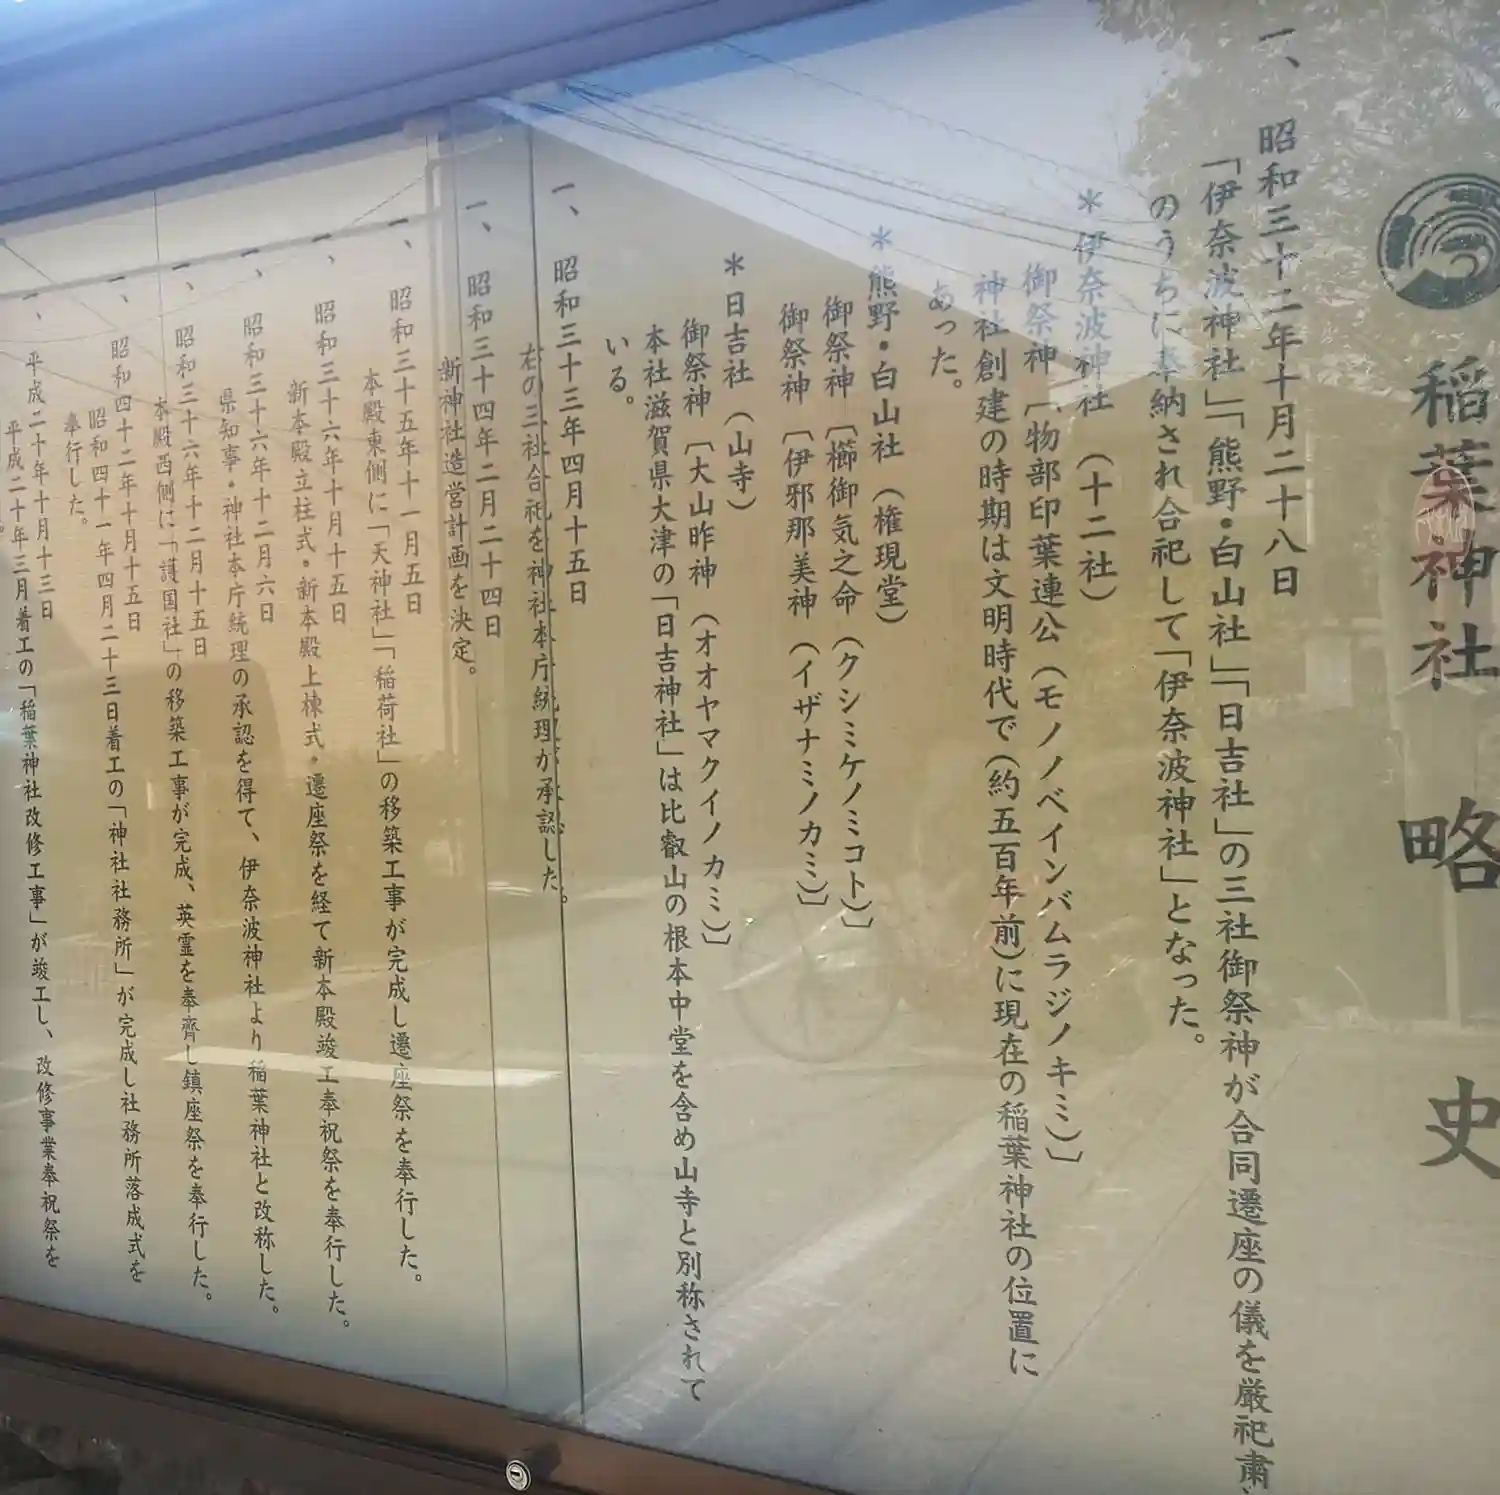 稲葉神社 略史
一、昭和三十二年十月二十八日
「伊奈波神社」「熊野・白山社」「日吉社」の三社御祭神が合同遷座の儀を厳祀粛
のうちに奉納され合祀して「伊奈波神社」となった。
＊伊奈波神社（十二社）
御祭神〔物部印葉連公（モノノベインバムラジノキミ）〕
神社創建の時期は文明時代で（約五百年前）に現在の稲葉神社の位置に
あった。
＊熊野・白山社（権現堂）
御祭神〔櫛御気之命（クシミケノミコト）〕
御祭神〔伊邪那美神（イザナミノカミ）〕
＊日吉社（山寺）
御祭神〔大山昨神（オオヤマクイノカミ）〕
本社滋賀県大津の「日吉神社」は比叡山の根本中堂を含め山寺と別称されて
いる。
一、昭和三十三年四月十五日
右の三社合祀を神社本庁統理が承認した。
一、昭和三十四年二月二十四日
新神社造営計画を決定。
一、昭和三十五年十一月五日
本殿東側に「天神社」「稲荷社」の移築工事が完成し遷座祭を奉行した。
一、昭和三十六年十月十五日
新本殿立柱式・新本殿上棟式・遷座祭を経て新本殿竣工奉祝祭を奉行した。
一、昭和三十六年十二月六日
県知事・神社本庁統理の承認を得て、伊奈波神社より稲葉神社と改称した。
一、昭和三十六年十二月十五日
本殿西側に「護国社」の移築工事が完成、英霊を奉齊し鎮座祭を奉行した。
一、昭和四十二年十月十五日
昭和四十一年四月二十三日着工の「神社社務所」が完成し社務所落成式を
奉行した。
一、平成二十年十月十三日
平成二十年三月着工の「稲葉神社改修工事」が竣工し、改修事業奉祝祭を